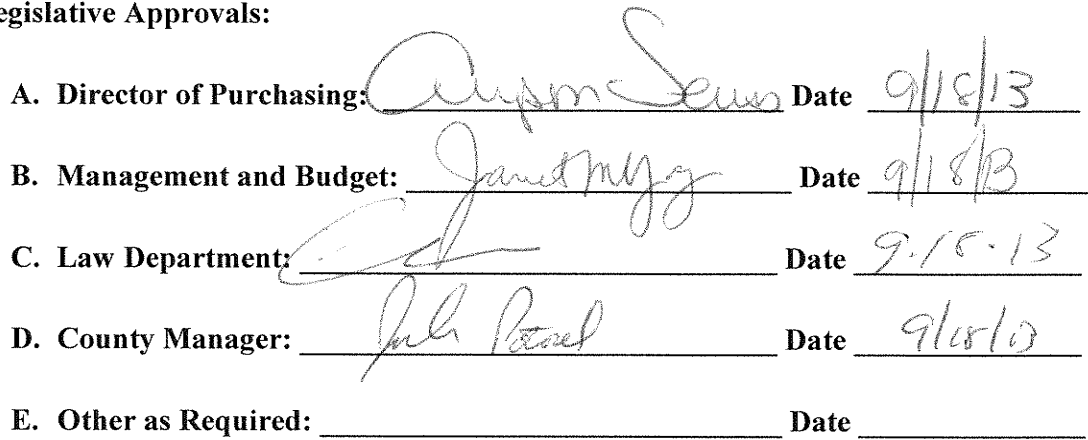 egislative Approvals:
A. Director of Purchasing: Date 9/18/13
B. Management and Budget: Janet Date 9/18/13
C. Law Department: Date 9.18.13
D. County Manager: Date 9/18/13
E. Other as Required: Date